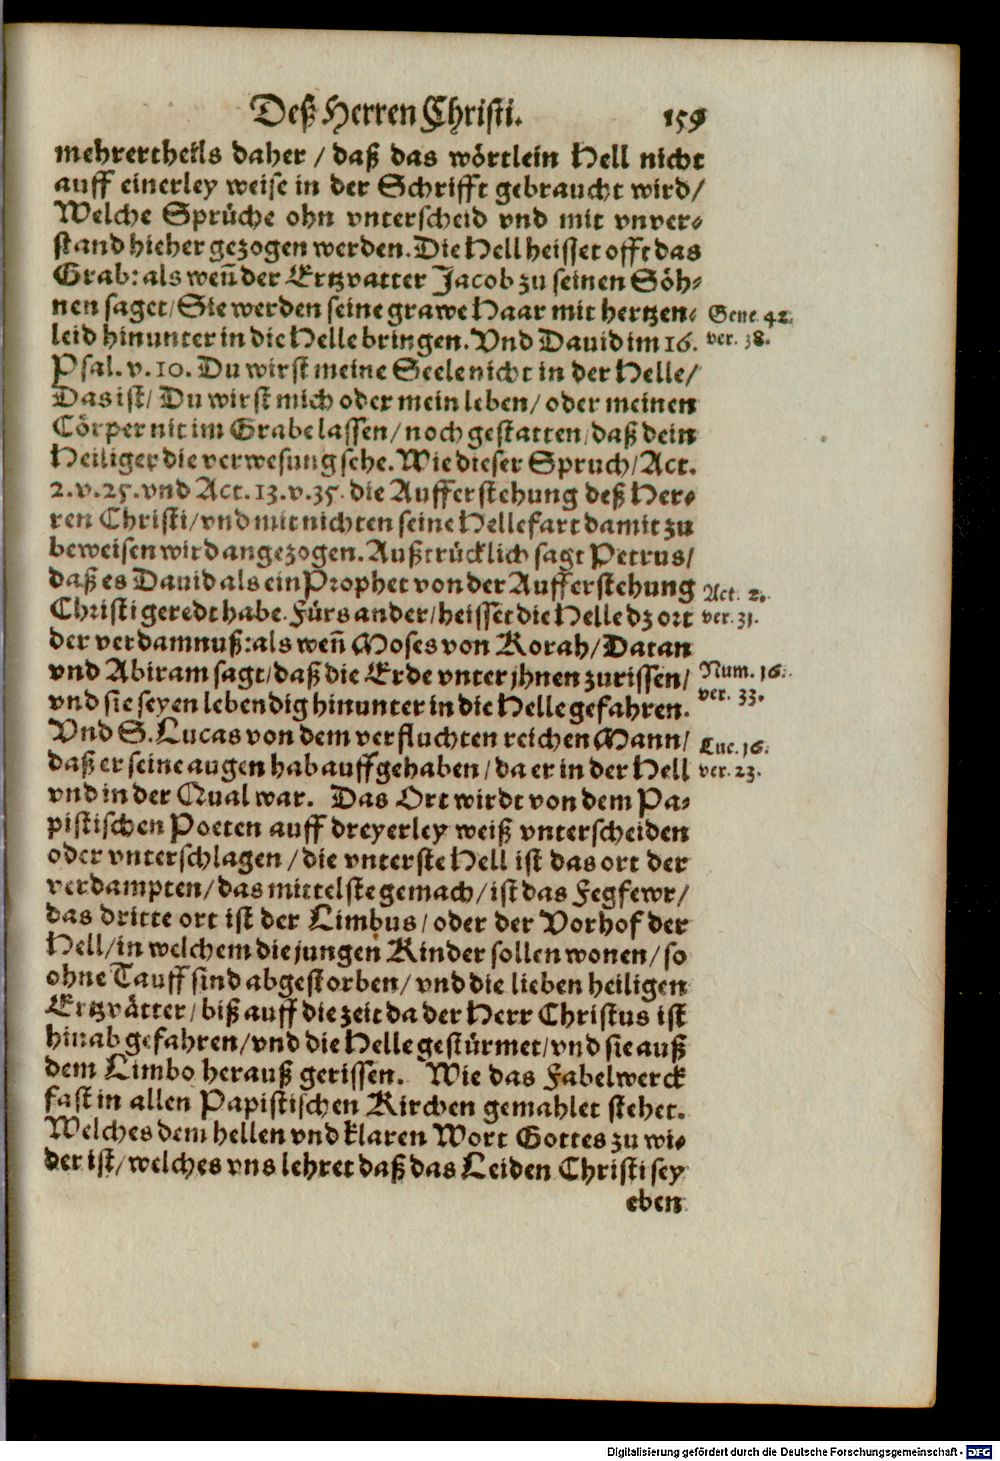 Deß Herren Christi. 159
mehrertheils daher / daß das wörtlein Hell nicht
auff einerley weise in der Schrifft gebraucht wird/
Welche Sprüche ohn vnterscheid vnd mit vnver-
stand hieher gezogen werden. Die Hell heisset offt das
Grab: als weñ der Ertzvatter Jacob zu seinen Söh-
nen saget/ Sie werden seine grawe Haar mit hertzen-
leid hinunter in die Helle bringen. Vnd Dauid im 16.
Gene. 42.
ver. 38.
Psal. v. 10. Du wirst meine Seele nicht in der Helle/
Das ist/ Du wirst mich oder mein leben/ oder meinen
Cörper nit im Grabe lassen/ noch gestatten/ daß dein
Heiliger die verwesung sehe. Wie dieser Spruch/ Act.
2. v. 25. vnd Act. 13. v. 35. die Aufferstehung deß Her-
ren Christi/ vnd mit nichten seine Hellefart damit zu
beweisen wird angezogen. Außtrücklich sagt Petrus/
daß es Dauid als ein Prophet von der Aufferstehung
Christi geredt habe. Fürs ander/ heisset die Helle dz ort
Act. 2.
ver. 31.
der verdamnuß: als weñ Moses von Korah/ Datan
vnd Abiram sagt/ daß die Erde vnter jhnen zurissen/
vnd sie seyen lebendig hinunter in die Helle gefahren.
Num. 16.
ver. 33.
Vnd S. Lucas von dem verfluchten reichen Mann/
daß er seine augen hab auffgehaben/ da er in der Hell
Luc. 16.
ver. 23.
vnd in der Qual war. Das Ort wirdt von dem Pa-
pistischen Poeten auff dreyerley weiß vnterscheiden
oder vnterschlagen / die vnterste Hell ist das ort der
verdampten/ das mittelste gemach/ ist das Fegfewr/
das dritte ort ist der Limbus/ oder der Vorhof der
Hell/ in welchem die jungen Kinder sollen wonen/ so
ohne Tauff sind abgestorben/ vnd die lieben heiligen
Ertzvätter/ biß auff die zeit da der Herr Christus ist
hinab gefahren/ vnd die Helle gestürmet/ vnd sie auß
dem Limbo herauß gerissen. Wie das Fabelwerck
fast in allen Papistischen Kirchen gemahlet stehet.
Welches dem hellen vnd klaren Wort Gottes zu wi-
der ist/ welches vns lehret daß das Leiden Christi sey
eben
Digitalisierung gefördert durch die Deutsche Forschungsgemeinschaft - DFG